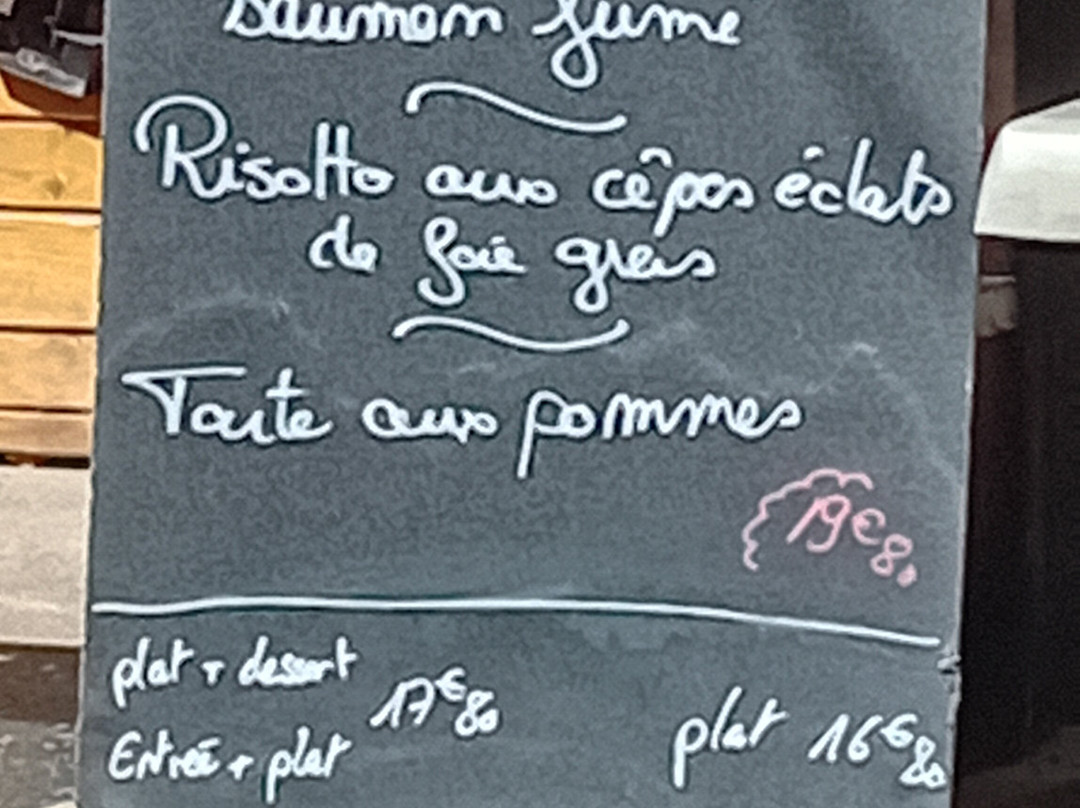 Saumon fumé
Risotto aux cêpes éclats
de foie gras
Tarte aux pommes
19€80
plat + dessert
17€80
Entrée + plat
plat 16€80